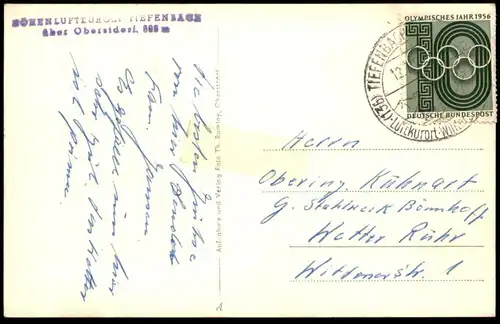 HÖHENLUFTKURORT TIEFENBACH
über Oberstdorf, 888 m
OLYMPISCHES JAHR 1956
DEUTSCHE BUNDESPOST
TIEFENBACH
Luftkurort
Die besten Grüße
von hier
Fam.
Es gefällt uns hier
sehr gut. Das Wetter
ist prima.
Aufnahme und Verlag Foto Th. Rummy, Oberstdorf
Herrn
Obering. Kühnart
G. Stahlwerk Bönnhoff
Wetter Ruhr
Wittenerstr. 1